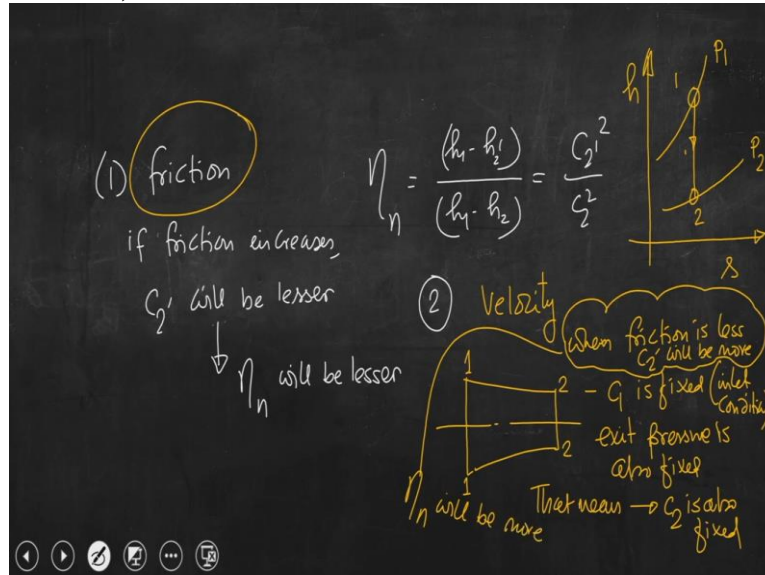 (1) friction
if friction increases,
C2' will be lesser
ηn will be lesser
ηn = (h1 - h2') / (h1 - h2) = C2'^2 / C2^2
h
P1
1
P2
2
s
2 Velocity
when friction is less
C2' will be more
1 2 - C1 is fixed (inlet condition)
exit pressure is
also fixed
1 2
ηn will be more
That means → C2 is also
fixed